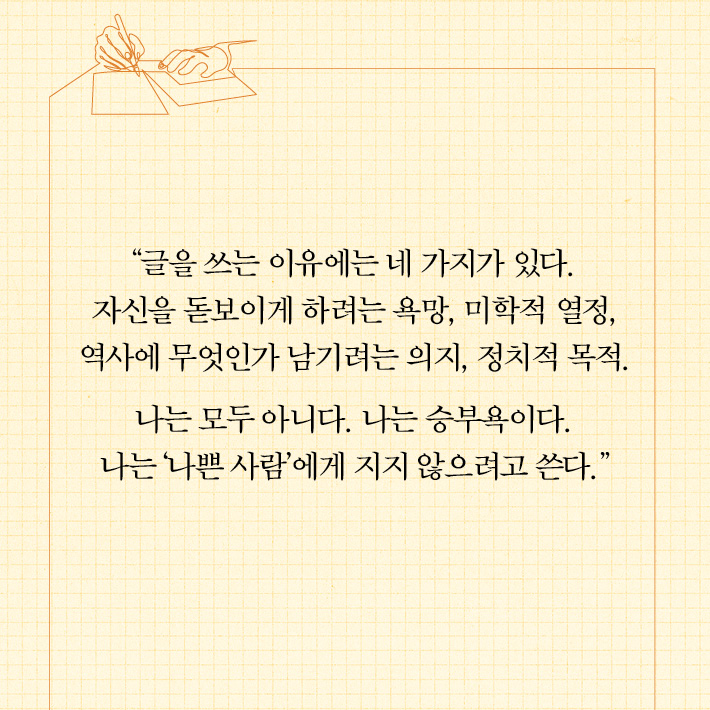 “글을 쓰는 이유에는 네 가지가 있다.
자신을 돋보이게 하려는 욕망, 미학적 열정,
역사에 무엇인가 남기려는 의지, 정치적 목적.
나는 모두 아니다. 나는 승부욕이다.
나는 ‘나쁜 사람’에게 지지 않으려고 쓴다.”